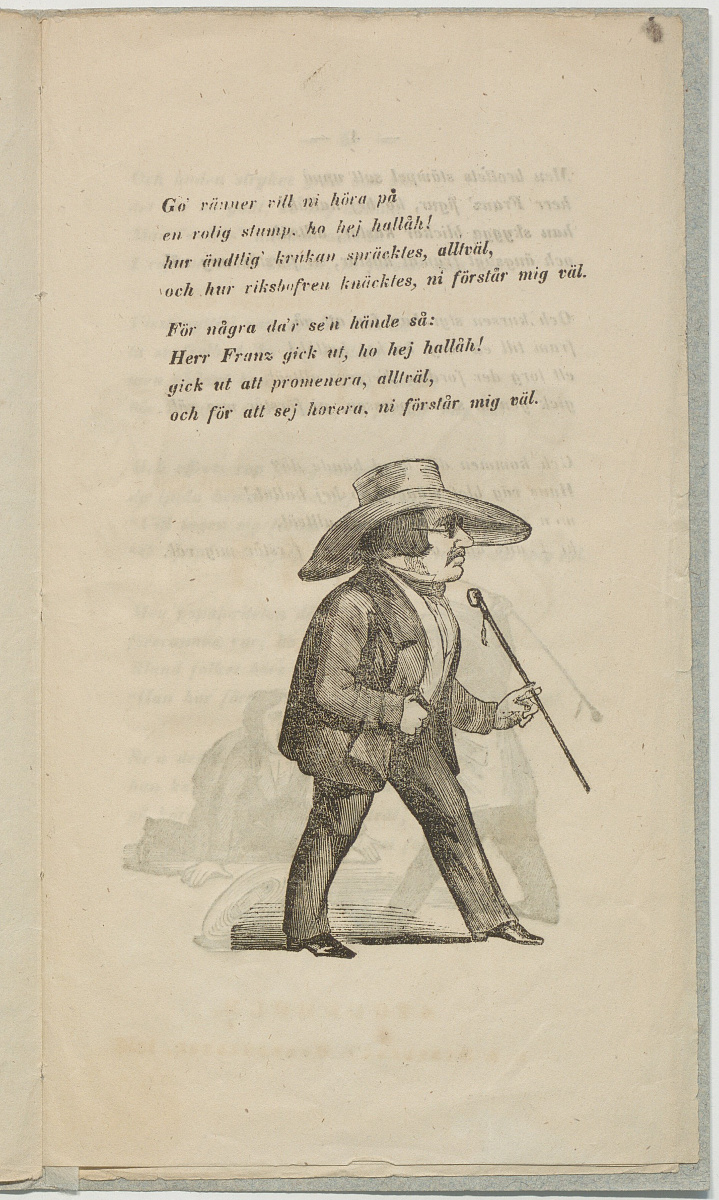 Go' vänner vill ni höra på
en rolig stump, ho hej hallåh!
hur ändtlig' krukan spräcktes, alltväl,
och hur riksbofven knäcktes, ni förstår mig väl.
För några da'r se'n hände så:
Herr Franz gick ut, ho hej hallåh!
gick ut att promenera, alltväl,
och för att sej hovera, ni förstår mig väl.